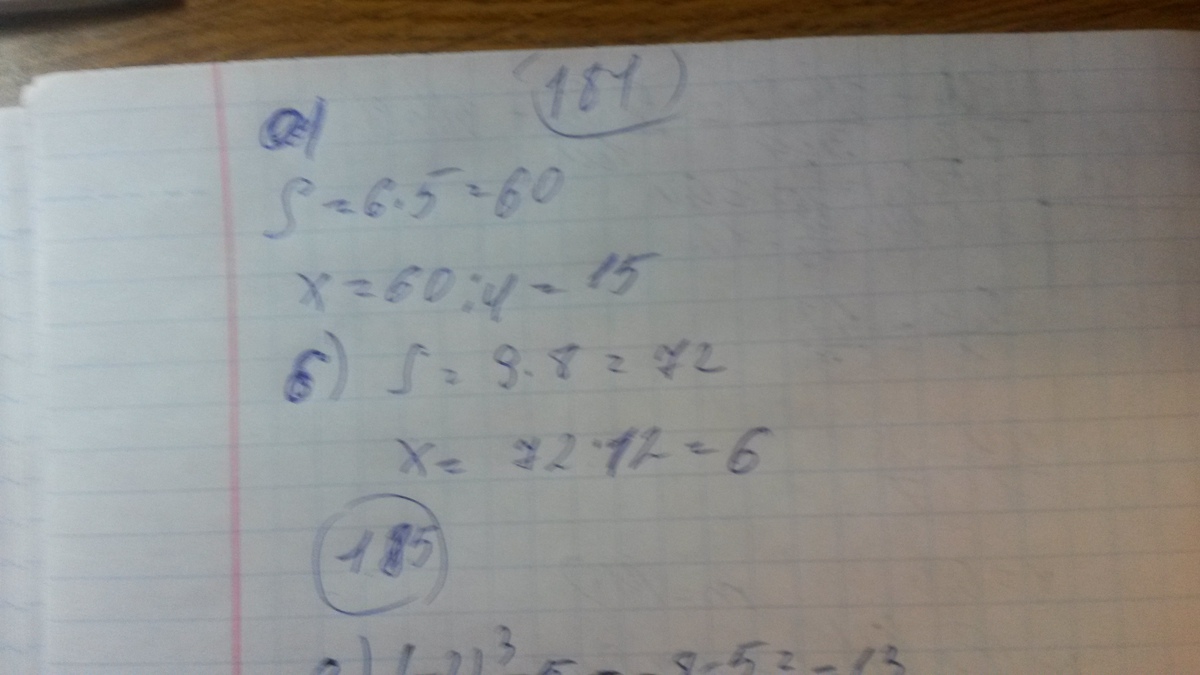 181
а)
S = 6·5 = 60
x = 60 : 4 = 15
б) S = 9·8 = 72
x = 72 : 12 = 6
185
а) (-2)³ - 5 = -8 - 5 = -13